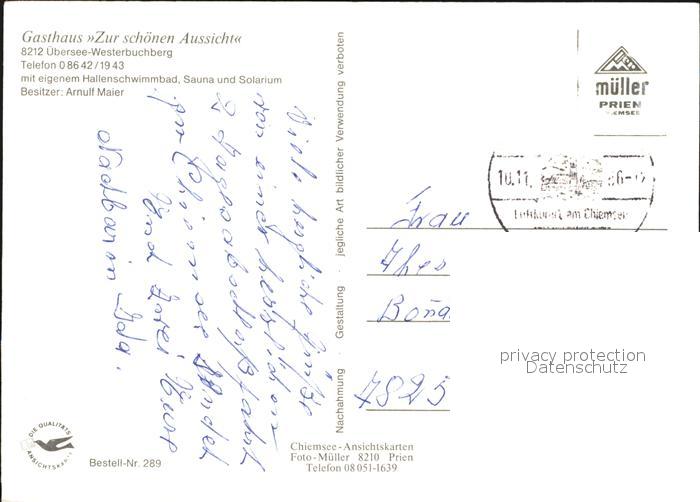 Gasthaus »Zur schönen Aussicht«
8212 Übersee-Westerbuchberg
Telefon 0 86 42 / 19 43
mit eigenem Hallenschwimmbad, Sauna und Solarium
Besitzer: Arnulf Maier
müller
PRIEN
10.11.
Luftkurort am Chiemsee
Viele herzliche Grüße
von einer herbstlichen
2 Tages
Chiemsee
Nachbarin Ida.
Nachahmung · Gestaltung · jegliche Art bildlicher Verwendung verboten
Frau
Theo
7825
privacy protection
Datenschutz
DIE QUALITÄTS
ANSICHTSKARTE
Bestell-Nr. 289
Chiemsee-Ansichtskarten
Foto-Müller 8210 Prien
Telefon 08051-1639